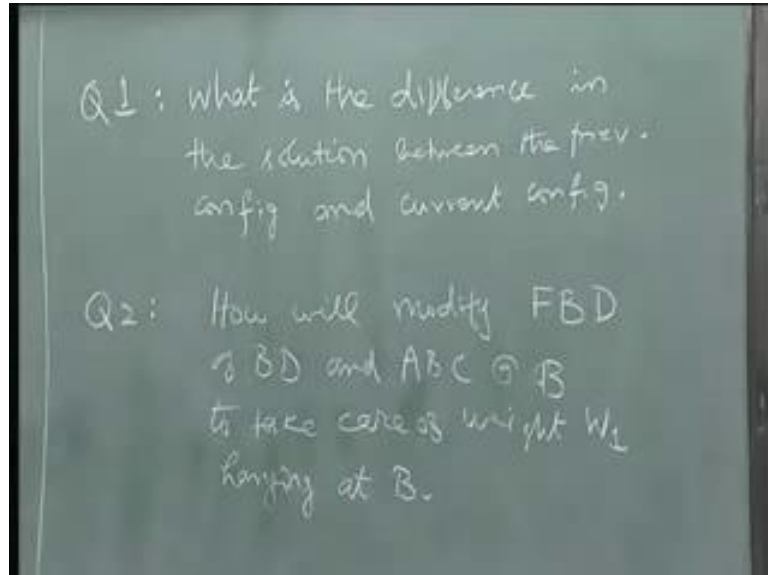 Q1: What is the difference in
the solution between the prev.
config and current config.
Q2: How will modify FBD
of BD and ABC @ B
to take care of weight W1
hanging at B.